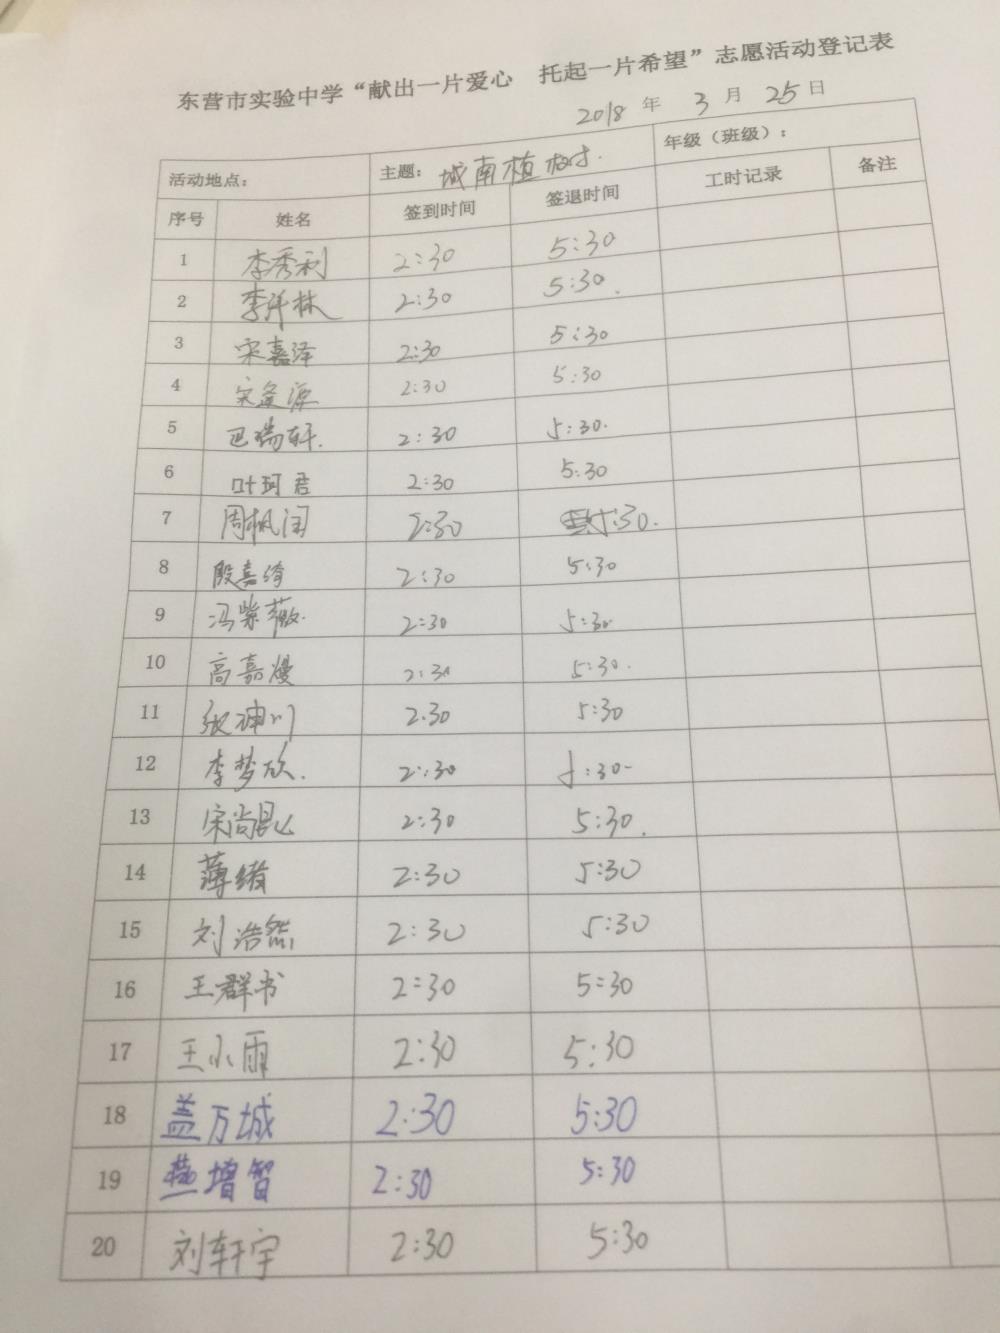 东营市实验中学“献出一片爱心 托起一片希望”志愿活动登记表
2018 年 3 月 25 日
活动地点： 主题： 城南植树. 年级（班级）：
序号 姓名 签到时间 签退时间 工时记录 备注
1 李秀利 2:30 5:30
2 李洋林 2:30 5:30.
3 宋嘉泽 2:30 5:30
4 宋逢源 2:30 5:30
5 巴瑞轩. 2:30 5:30.
6 叶珂君 2:30 5:30
7 周枫 2:30 :30.
8 殷嘉绮 2:30 5:30
9 冯紫薇. 2:30 5:30
10 高嘉熳 2:30 5:30.
11 张 川 2:30 5:30
12 李梦欣. 2:30 5:30
13 宋尚昆 2:30 5:30.
14 薄 2:30 5:30
15 刘浩然 2:30 5:30
16 王群书 2:30 5:30
17 王小雨 2:30 5:30
18 盖万城 2:30 5:30
19 燕增智 2:30 5:30
20 刘轩宇 2:30 5:30